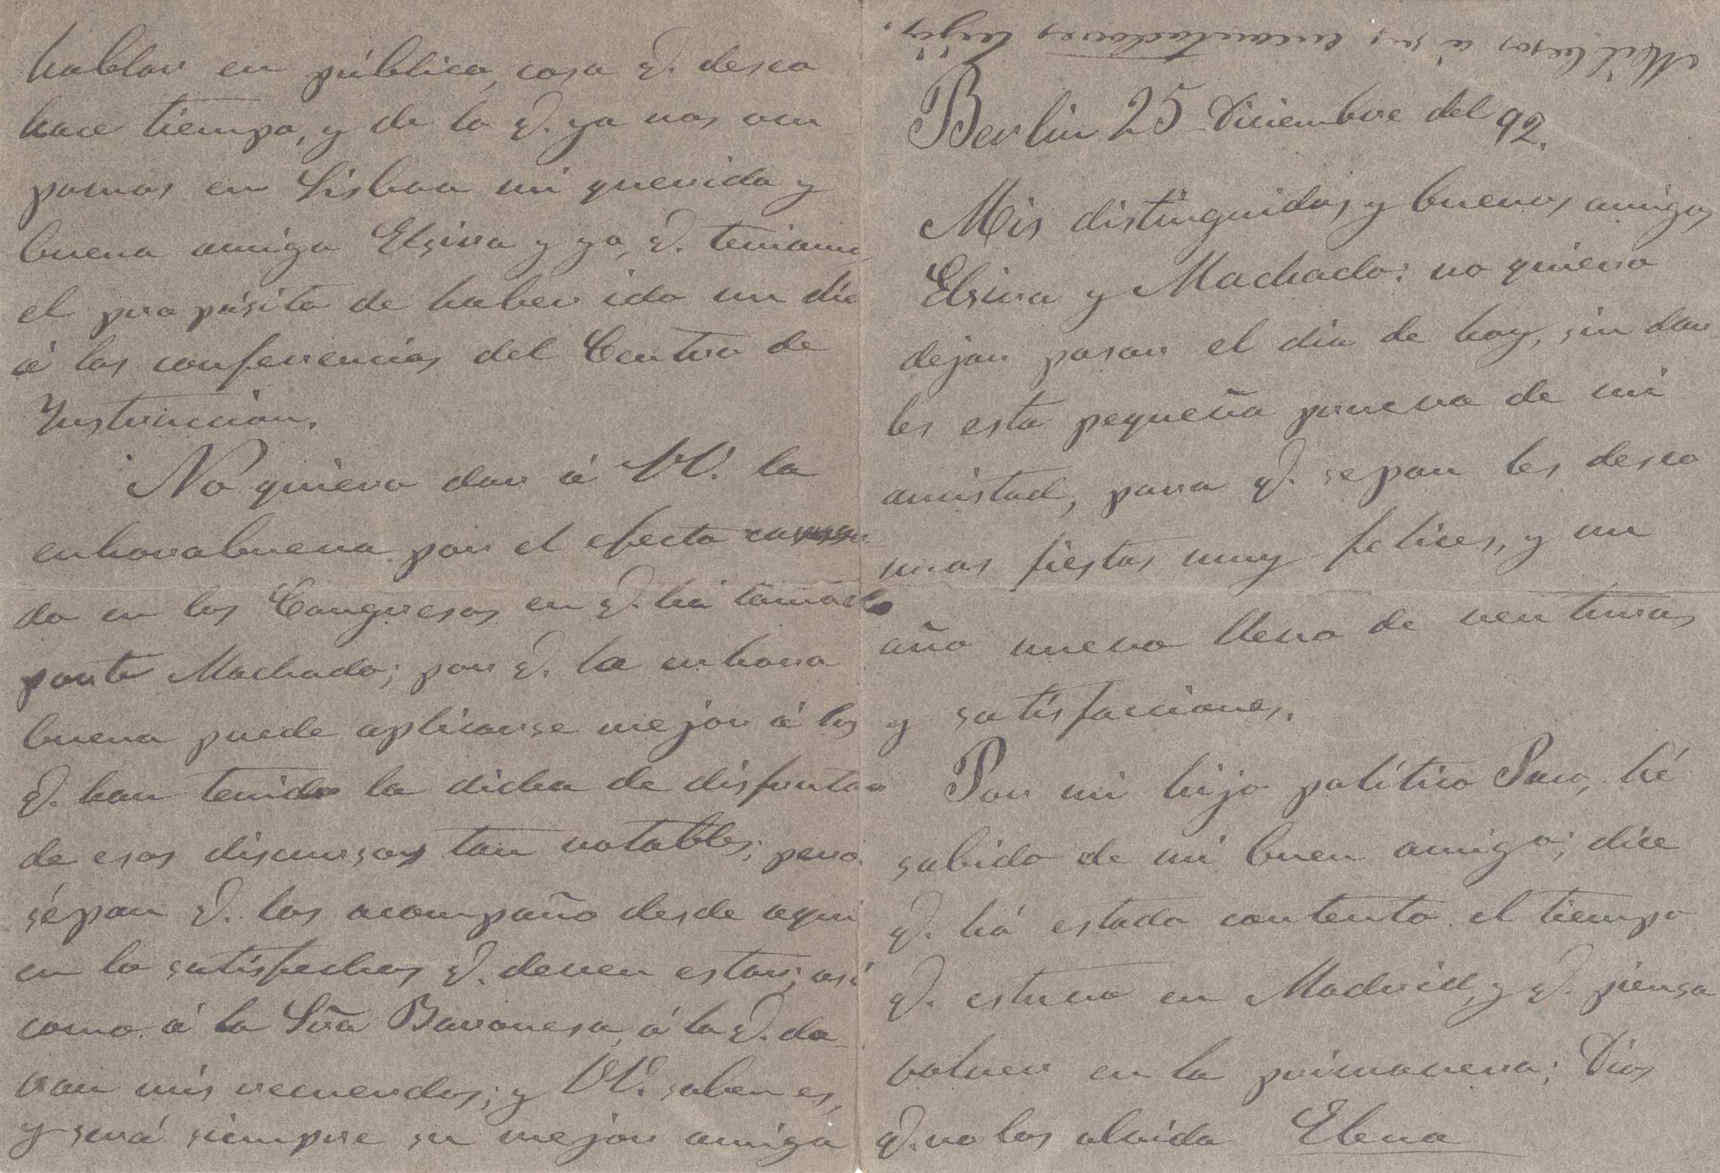 hablar en pública, cosa q. deseo
hace tiempo, y de lo q. ya nos ocu
pamos en Lisboa mi querida y
buena amiga Elsira y yo, q. teniamos
el propósito de haber ido un dia
á las conferencias del Centro de
Instruccion.
No quiero dar á VV. la
enhorabuena por el efecto causa
do en los Congresos en q. há tomado
parte Machado; por q. la enhora
buena puede aplicarse mejor á los
q. han tenido la dicha de disfrutar
de esos discursos tan notables; pero
sépan q. los acompaño desde aqui
en lo satisfechos q. deven estar; así
como á la Sra Baronesa, á la q. da
ran mis recuerdos; y VV. saben es,
y será siempre su mejor amiga
Mil besos á sus encantadores hijos.
Berlin 25 Diciembre del 92.
Mis distinguidos y buenos amigos
Elsira y Machado: no quiero
dejar pasar el dia de hoy, sin dar
les esta pequeña prueva de mi
amistad, para q. sepan les deseo
unas fiestas muy felices, y un
año nuevo lleno de venturas
y satisfacciones.
Por mi hijo político Paco, hé
sabido de mi buen amigo; dice
q. há estado contento el tiempo
q. estuvo en Madrid, y q. piensa
volver en la primavera; Dios
q. no los olvida Elena